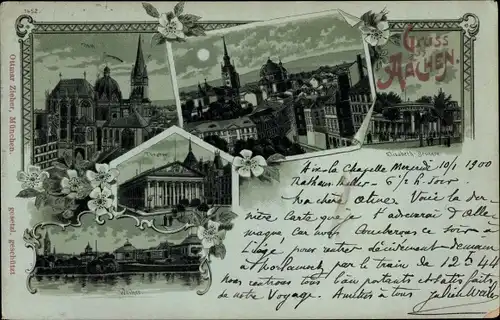 1452.
GRUSS AUS
AACHEN.
Ottmar Zieher, München.
gesetzl. geschützt
Elisabeth-Brunnen
Theater
Aix-la-Chapelle Mercredi 10/1 1900
Rathaus Keller - 6 1/2 h. Soir.
Ma chère Olive. Voici la der-
nière Carte que je t'adresserai d'Alle-
magne car nous coucherons ce soir à
Liège pour rentrer décidément demain
à par le train de 12 h 44
Nous rentrons tous bien portants et satisfaits
de notre Voyage. Amitiés à tous Julien